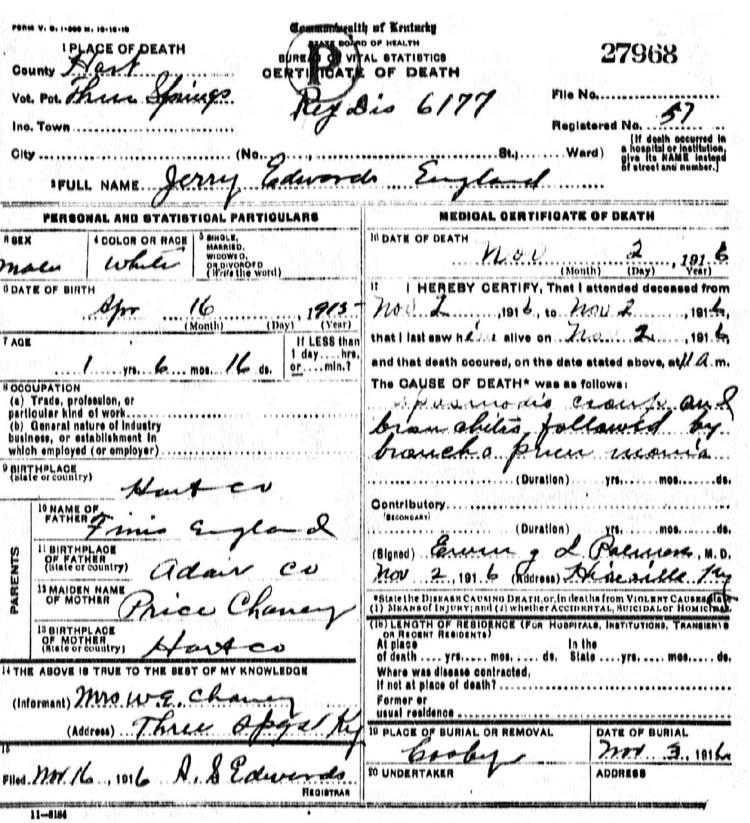 FORM V. S. 1-500 M. 10-10-10
Commonwealth of Kentucky
STATE BOARD OF HEALTH
BUREAU OF VITAL STATISTICS
CERTIFICATE OF DEATH
P
27968
1 PLACE OF DEATH
County Hart
Vot. Pct. Three Springs
Reg Dis 6177
File No.
Inc. Town
Registered No. 57
City (No. St., Ward)
[If death occurred in
a hospital or institution,
give its NAME instead
of street and number.]
2 FULL NAME Jerry Edwards England
PERSONAL AND STATISTICAL PARTICULARS
3 SEX
Male
4 COLOR OR RACE
White
5 SINGLE,
MARRIED,
WIDOWED,
OR DIVORCED
(Write the word)
6 DATE OF BIRTH
Apr 16 1915
(Month) (Day) (Year)
7 AGE
1 yrs. 6 mos. 16 ds.
If LESS than
1 day....hrs.
or....min.?
8 OCCUPATION
(a) Trade, profession, or
particular kind of work
(b) General nature of industry
business, or establishment in
which employed (or employer)
9 BIRTHPLACE
(State or country)
Hart co
PARENTS
10 NAME OF
FATHER Finis England
11 BIRTHPLACE
OF FATHER
(State or country) Adair co
12 MAIDEN NAME
OF MOTHER Price Chaney
13 BIRTHPLACE
OF MOTHER
(State or country) Hart co
14 THE ABOVE IS TRUE TO THE BEST OF MY KNOWLEDGE
(Informant) Mrs W.E. Chaney
(Address) Three Spgs Ky
15
Filed Nov 16, 1916 A. S Edwards
REGISTRAR
11-8184
MEDICAL CERTIFICATE OF DEATH
16 DATE OF DEATH
Nov 2, 1916
(Month) (Day) (Year)
17 I HEREBY CERTIFY, That I attended deceased from
Nov 2, 1916, to Nov 2, 1916,
that I last saw h alive on Nov 2, 1916,
and that death occured, on the date stated above, at 11 a.m.
The CAUSE OF DEATH* was as follows:
Spasmodic croup and
bronchitis followed by
broncho pneumonia
(Duration) yrs. mos. ds.
Contributory
(SECONDARY)
(Duration) yrs. mos. ds.
(Signed) Palmore, M. D.
Nov 2, 1916 (Address) Hiseville Ky
*State the DISEASE CAUSING DEATH, or, in deaths from VIOLENT CAUSES, state
(1) MEANS of INJURY; and (2) whether ACCIDENTAL, SUICIDAL or HOMICIDAL.
(18) LENGTH OF RESIDENCE (FOR HOSPITALS, INSTITUTIONS, TRANSIENTS
OR RECENT RESIDENTS)
At place In the
of death ....yrs.....mos.....ds. State ....yrs.....mos.....ds.
Where was disease contracted,
If not at place of death?
Former or
usual residence
19 PLACE OF BURIAL OR REMOVAL
Cosby
DATE OF BURIAL
Nov 3, 1916
20 UNDERTAKER
ADDRESS